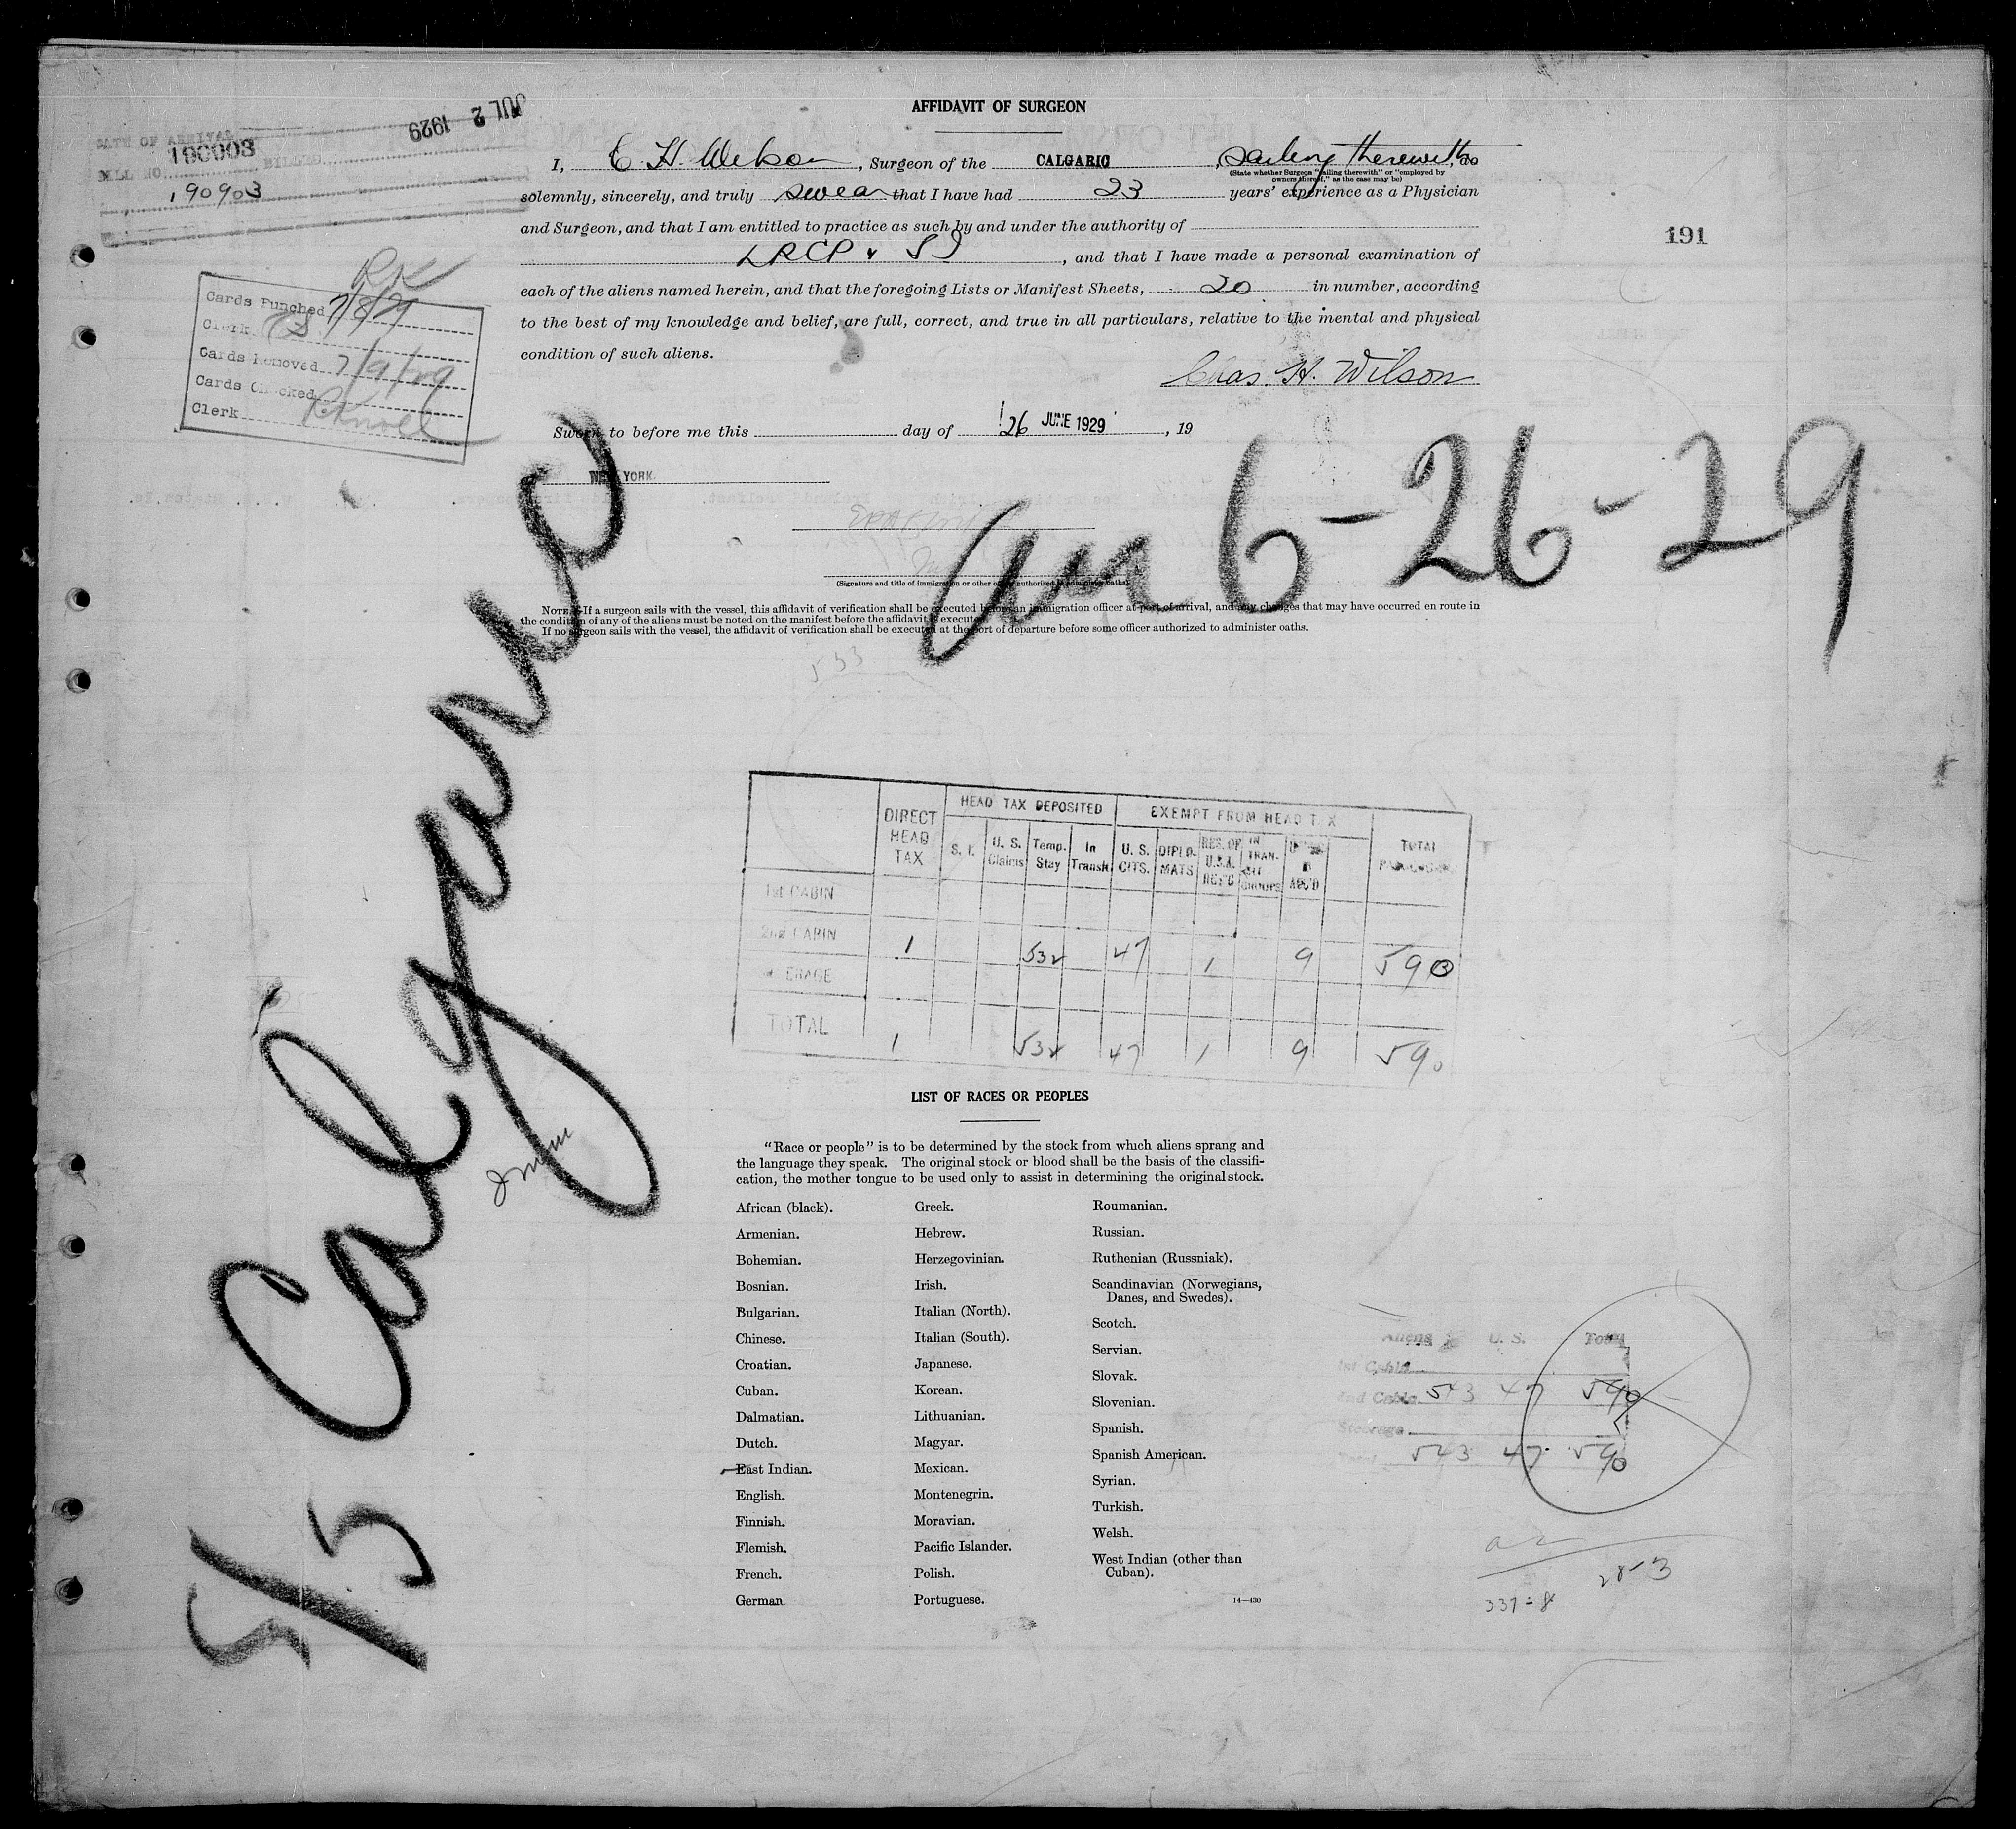 JUL 2 1929
DATE OF ARRIVAL
190903
BILL NO. BILLED
190903
AFFIDAVIT OF SURGEON
I, C. H. Wilson, Surgeon of the CALGARIC, sailing therewith, do
(State whether Surgeon "sailing therewith" or "employed by
owners thereof," as the case may be)
solemnly, sincerely, and truly swear that I have had 23 years' experience as a Physician
and Surgeon, and that I am entitled to practice as such by and under the authority of
LRCP & SI, and that I have made a personal examination of
each of the aliens named herein, and that the foregoing Lists or Manifest Sheets, 20 in number, according
to the best of my knowledge and belief, are full, correct, and true in all particulars, relative to the mental and physical
condition of such aliens.
Chas. H. Wilson
191
Cards Punched 7/8/29
Clerk
Cards Removed 7/9/29
Cards Checked
Clerk
Sworn to before me this day of 26 JUNE 1929, 19
NEW YORK
6-26-29
(Signature and title of immigration or other officer authorized to administer oaths)
NOTE.—If a surgeon sails with the vessel, this affidavit of verification shall be executed before an immigration officer at port of arrival, and any changes that may have occurred en route in
the condition of any of the aliens must be noted on the manifest before the affidavit is executed.
If no surgeon sails with the vessel, the affidavit of verification shall be executed at the port of departure before some officer authorized to administer oaths.
533
S/S Calgaric
DIRECT HEAD TAX
HEAD TAX DEPOSITED
EXEMPT FROM HEAD TAX
TOTAL
S. I. U. S. Claims Temp. Stay In Transit U. S. CITS. DIPLO-MATS RES. OF U.S.A. IN TRAN-SIT GROUPS
1st CABIN
2nd CABIN 1 532 47 1 9 590
STEERAGE
TOTAL 1 532 47 1 9 590
LIST OF RACES OR PEOPLES
"Race or people" is to be determined by the stock from which aliens sprang and
the language they speak. The original stock or blood shall be the basis of the classifi-
cation, the mother tongue to be used only to assist in determining the original stock.
African (black).
Armenian.
Bohemian.
Bosnian.
Bulgarian.
Chinese.
Croatian.
Cuban.
Dalmatian.
Dutch.
East Indian.
English.
Finnish.
Flemish.
French.
German
Greek.
Hebrew.
Herzegovinian.
Irish.
Italian (North).
Italian (South).
Japanese.
Korean.
Lithuanian.
Magyar.
Mexican.
Montenegrin.
Moravian.
Pacific Islander.
Polish.
Portuguese.
Roumanian.
Russian.
Ruthenian (Russniak).
Scandinavian (Norwegians,
Danes, and Swedes).
Scotch.
Servian.
Slovak.
Slovenian.
Spanish.
Spanish American.
Syrian.
Turkish.
Welsh.
West Indian (other than
Cuban).
14—430
Aliens U. S. Total
1st Cabin
2nd Cabin 543 47 590
Steerage
543 47 590